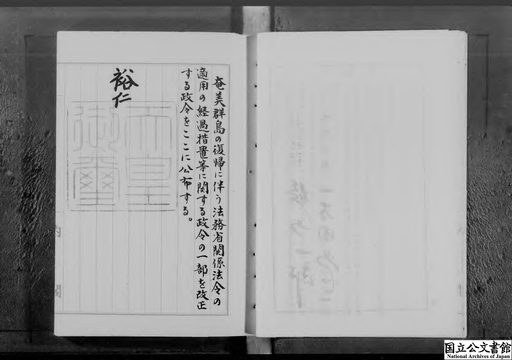 奄美群島の復帰に伴う法務省関係法令の
適用の経過措置等に関する政令の一部を改正
する政令をここに公布する。
裕仁
天皇
御璽
国立公文書館
National Archives of Japan